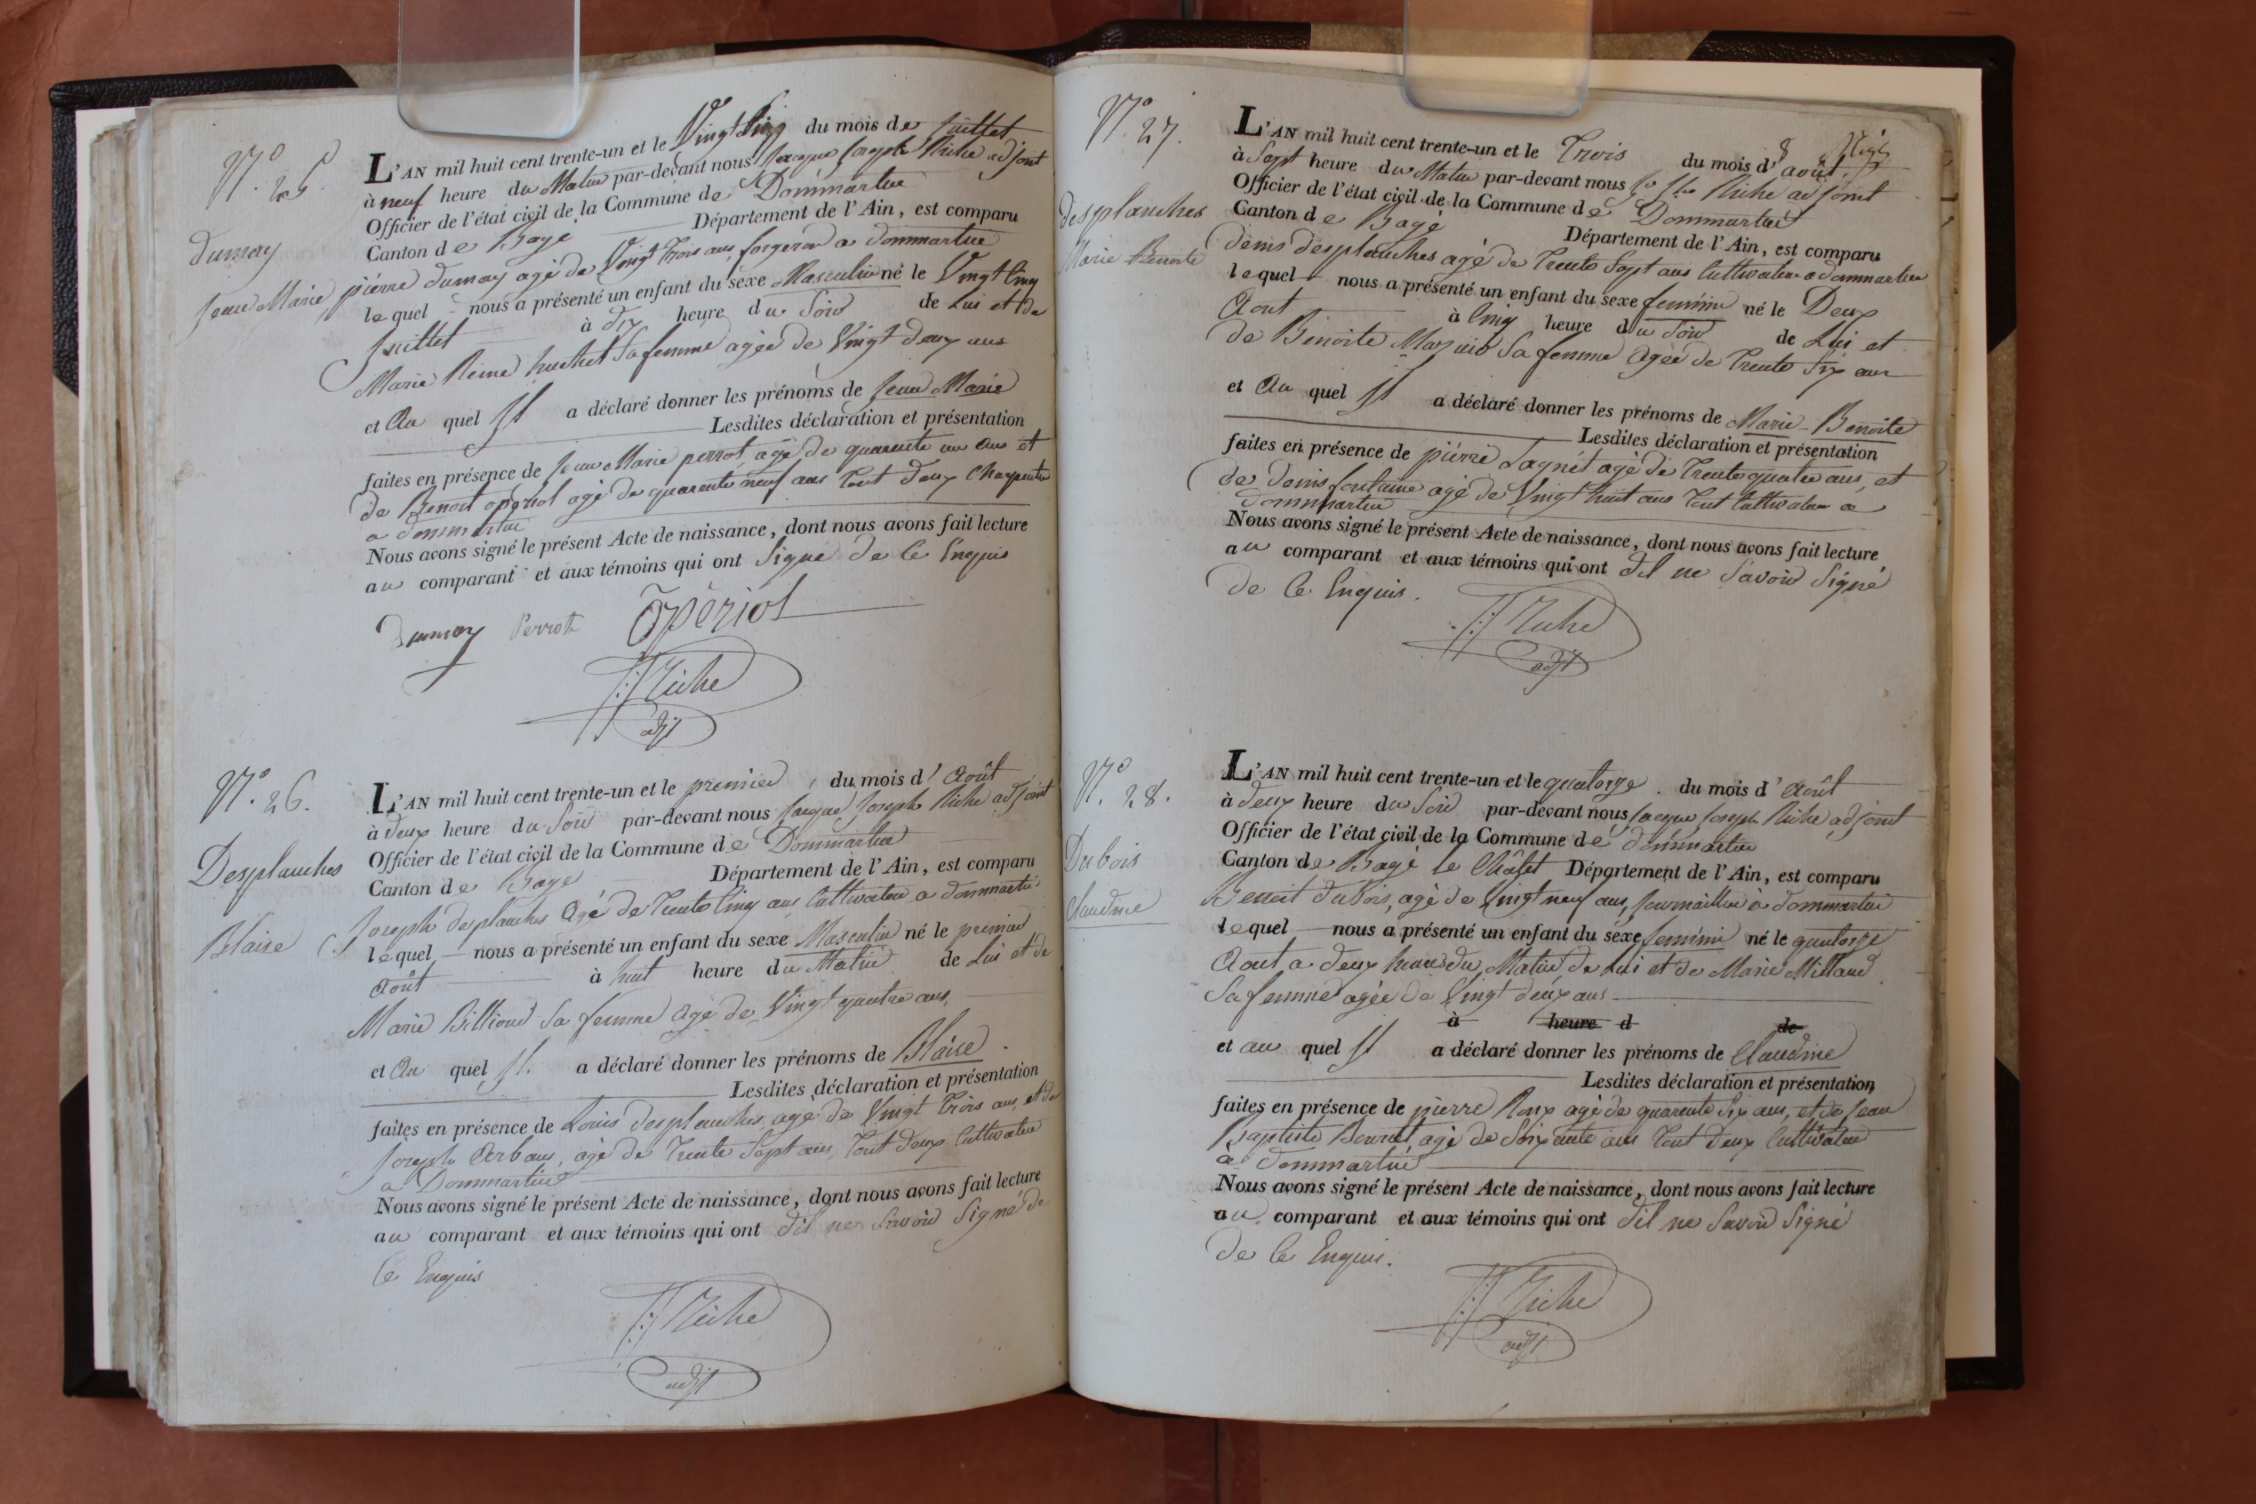 N.° 25.
dumay
jean Marie
L'AN mil huit cent trente-un et le Vingt Six du mois de juillet
à neuf heure du Matin par-devant nous jacque joseph Riche adjoint
Officier de l'état civil de la Commune de Dommartin
Canton de Bagé Département de l'Ain, est comparu
pierre dumay agé de Vingt trois ans, forgeron a dommartin
lequel nous a présenté un enfant du sexe Masculin né le Vingt Cinq
juillet à dix heure du Soir de Lui et de
Marie Reine huchet Sa femme agée de Vingt deux ans
et Au quel Il a déclaré donner les prénoms de jean Marie
Lesdites déclaration et présentation
faites en présence de jean Marie perrot agé de quarente un ans et
de Benoit opériol agé de quarente neuf ans tout deux Charpentier
a dommartin
Nous avons signé le présent Acte de naissance, dont nous avons fait lecture
au comparant et aux témoins qui ont Signé de Ce Enquis
Dumay Perrot Opériol
Riche
adjt
N.° 26.
Desplanches
Blaise
L'AN mil huit cent trente-un et le premier du mois d'Août
à deux heure du Soir par-devant nous jacque joseph Riche adjoint
Officier de l'état civil de la Commune de Dommartin
Canton de Bagé Département de l'Ain, est comparu
joseph desplanches Agé de trente Cinq ans Cultivateur a dommartin
lequel nous a présenté un enfant du sexe Masculin né le premier
Août à huit heure du Matin de Lui et de
Marie Billioud Sa femme Agé de Vingt quatre ans
et Au quel Il a déclaré donner les prénoms de Blaise
Lesdites déclaration et présentation
faites en présence de Louis desplanches agé de Vingt trois ans, et de
joseph Arbans, agé de trente Sept ans, tout deux Cultivateur
a Dommartin
Nous avons signé le présent Acte de naissance, dont nous avons fait lecture
au comparant et aux témoins qui ont dit ne Savoir Signé de
Ce Enquis
Riche
adjt
N.° 27.
desplanches
Marie Benoite
L'AN mil huit cent trente-un et le Trois du mois d'août
à Sept heure du Matin par-devant nous Riche adjoint
Officier de l'état civil de la Commune de Dommartin
Canton de Bagé Département de l'Ain, est comparu
denis desplanches agé de trente Sept ans Cultivateur a dommartin
lequel nous a présenté un enfant du sexe feminin né le Deux
Aout à Cinq heure du Soir de Lui et
de Benoite Mazuir Sa femme Agée de trente Six ans
et Au quel Il a déclaré donner les prénoms de Marie Benoite
Lesdites déclaration et présentation
faites en présence de pierre Sagnet agé de trente quatre ans, et
de denis fontaine agé de Vingt huit ans tout Cultivateur a
dommartin
Nous avons signé le présent Acte de naissance, dont nous avons fait lecture
au comparant et aux témoins qui ont dit ne Savoir Signé
de Ce Enquis.
Riche
adjt
N.° 28.
Dubois
Claudine
L'AN mil huit cent trente-un et le quatorze du mois d'Août
à deux heure du Soir par-devant nous jacque joseph Riche adjoint
Officier de l'état civil de la Commune de dommartin
Canton de Bagé le Châtel Département de l'Ain, est comparu
Benoit dubois, agé de Vingt neuf ans, journaillier à dommartin
lequel nous a présenté un enfant du sexe feminin né le quatorze
Aout a deux heure du Matin de Lui et de Marie Millaud
Sa femme agée de Vingt deux ans
à heure d de
et au quel Il a déclaré donner les prénoms de Claudine
Lesdites déclaration et présentation
faites en présence de pierre Roux agé de quarente Six ans, et de jean
Baptiste agé de Soixante ans tout deux Cultivateur
a dommartin
Nous avons signé le présent Acte de naissance, dont nous avons fait lecture
au comparant et aux témoins qui ont dit ne Savoir Signé
de Ce Enquis.
Riche
adjt